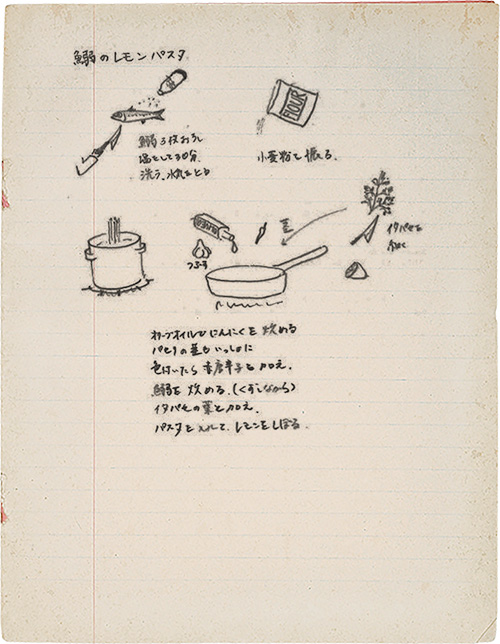 鰯のレモンパスタ
鰯3枚おろし
塩をして30分
洗う、水気をとる
FLOUR
小麦粉を振る。
イタパセを
きざむ
茎
つぶす
オリーブオイルでにんにくを炒める
パセリの茎もいっしょに
色付いたら赤唐辛子を加え、
鰯を炒める。(くずしながら)
イタパセの葉を加え、
パスタを入れて、レモンをしぼる。